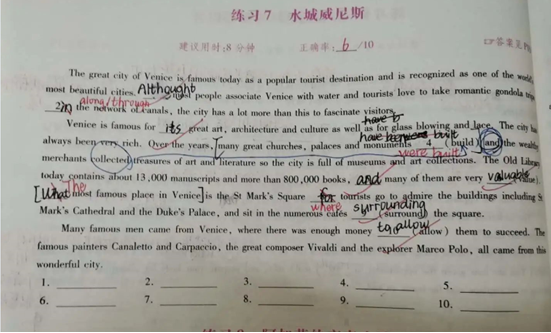 练习7 水城威尼斯
建议用时:8分钟 正确率: 6 /10 答案见P
The great city of Venice is famous today as a popular tourist destination and is recognized as one of the
most beautiful cities. Althought most people associate Venice with water and tourists love to take romantic gondola trips
along/through
2 in the network of canals, the city has a lot more than this to fascinate visitors.
Venice is famous for its great art, architecture and culture as well as for glass blowing and lace. The city has
always been very rich. Over the years, [many great churches, palaces and monuments 4 (build) and the wealthy
have built
were built
merchants collected treasures of art and literature so the city is full of museums and art collections. The Old Library
today contains about 13,000 manuscripts and more than 800,000 books, and many of them are very valuable
The
[What most famous place in Venice] is the St Mark's Square for tourists go to admire the buildings including St
where
Mark's Cathedral and the Duke's Palace, and sit in the numerous cafés surrounding (surround) the square.
Many famous men came from Venice, where there was enough money to allow (allow) them to succeed. The
famous painters Canaletto and Carpaccio, the great composer Vivaldi and the explorer Marco Polo, all came from this
wonderful city.
1. 2. 3. 4. 5.
6. 7. 8. 9. 10.